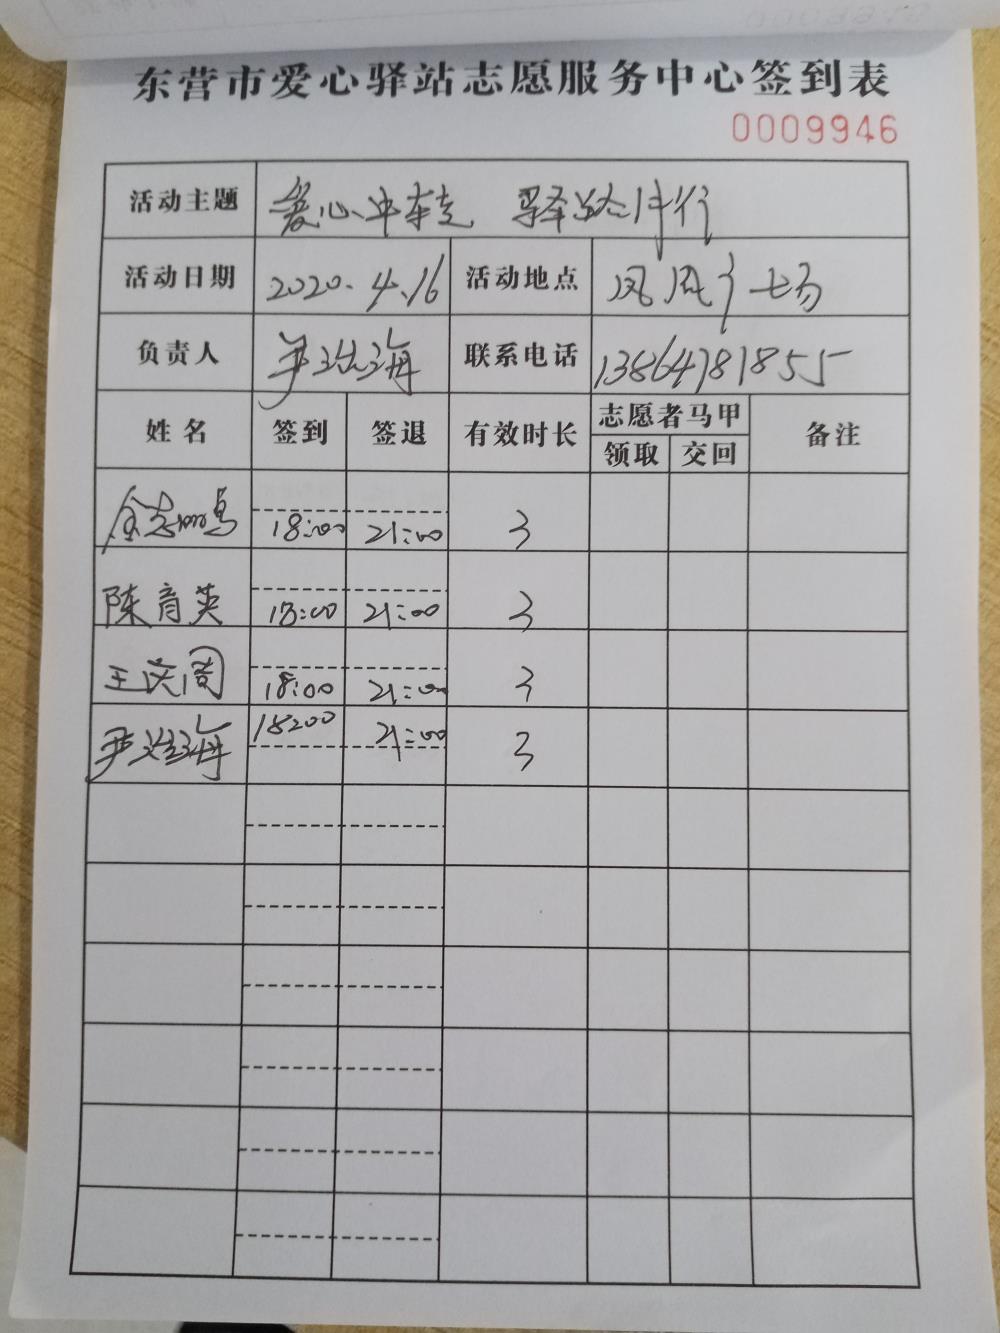 东营市爱心驿站志愿服务中心签到表
0009946
活动主题 爱心中转 驿站伴行
活动日期 2020.4.16 活动地点 凤凰广场
负责人 尹洪海 联系电话 13864781855
姓名 签到 签退 有效时长 志愿者马甲 备注
领取 交回
18:00 21:00 3
陈育英 18:00 21:00 3
王庆周 18:00 21:00 3
尹洪海 18:00 21:00 3